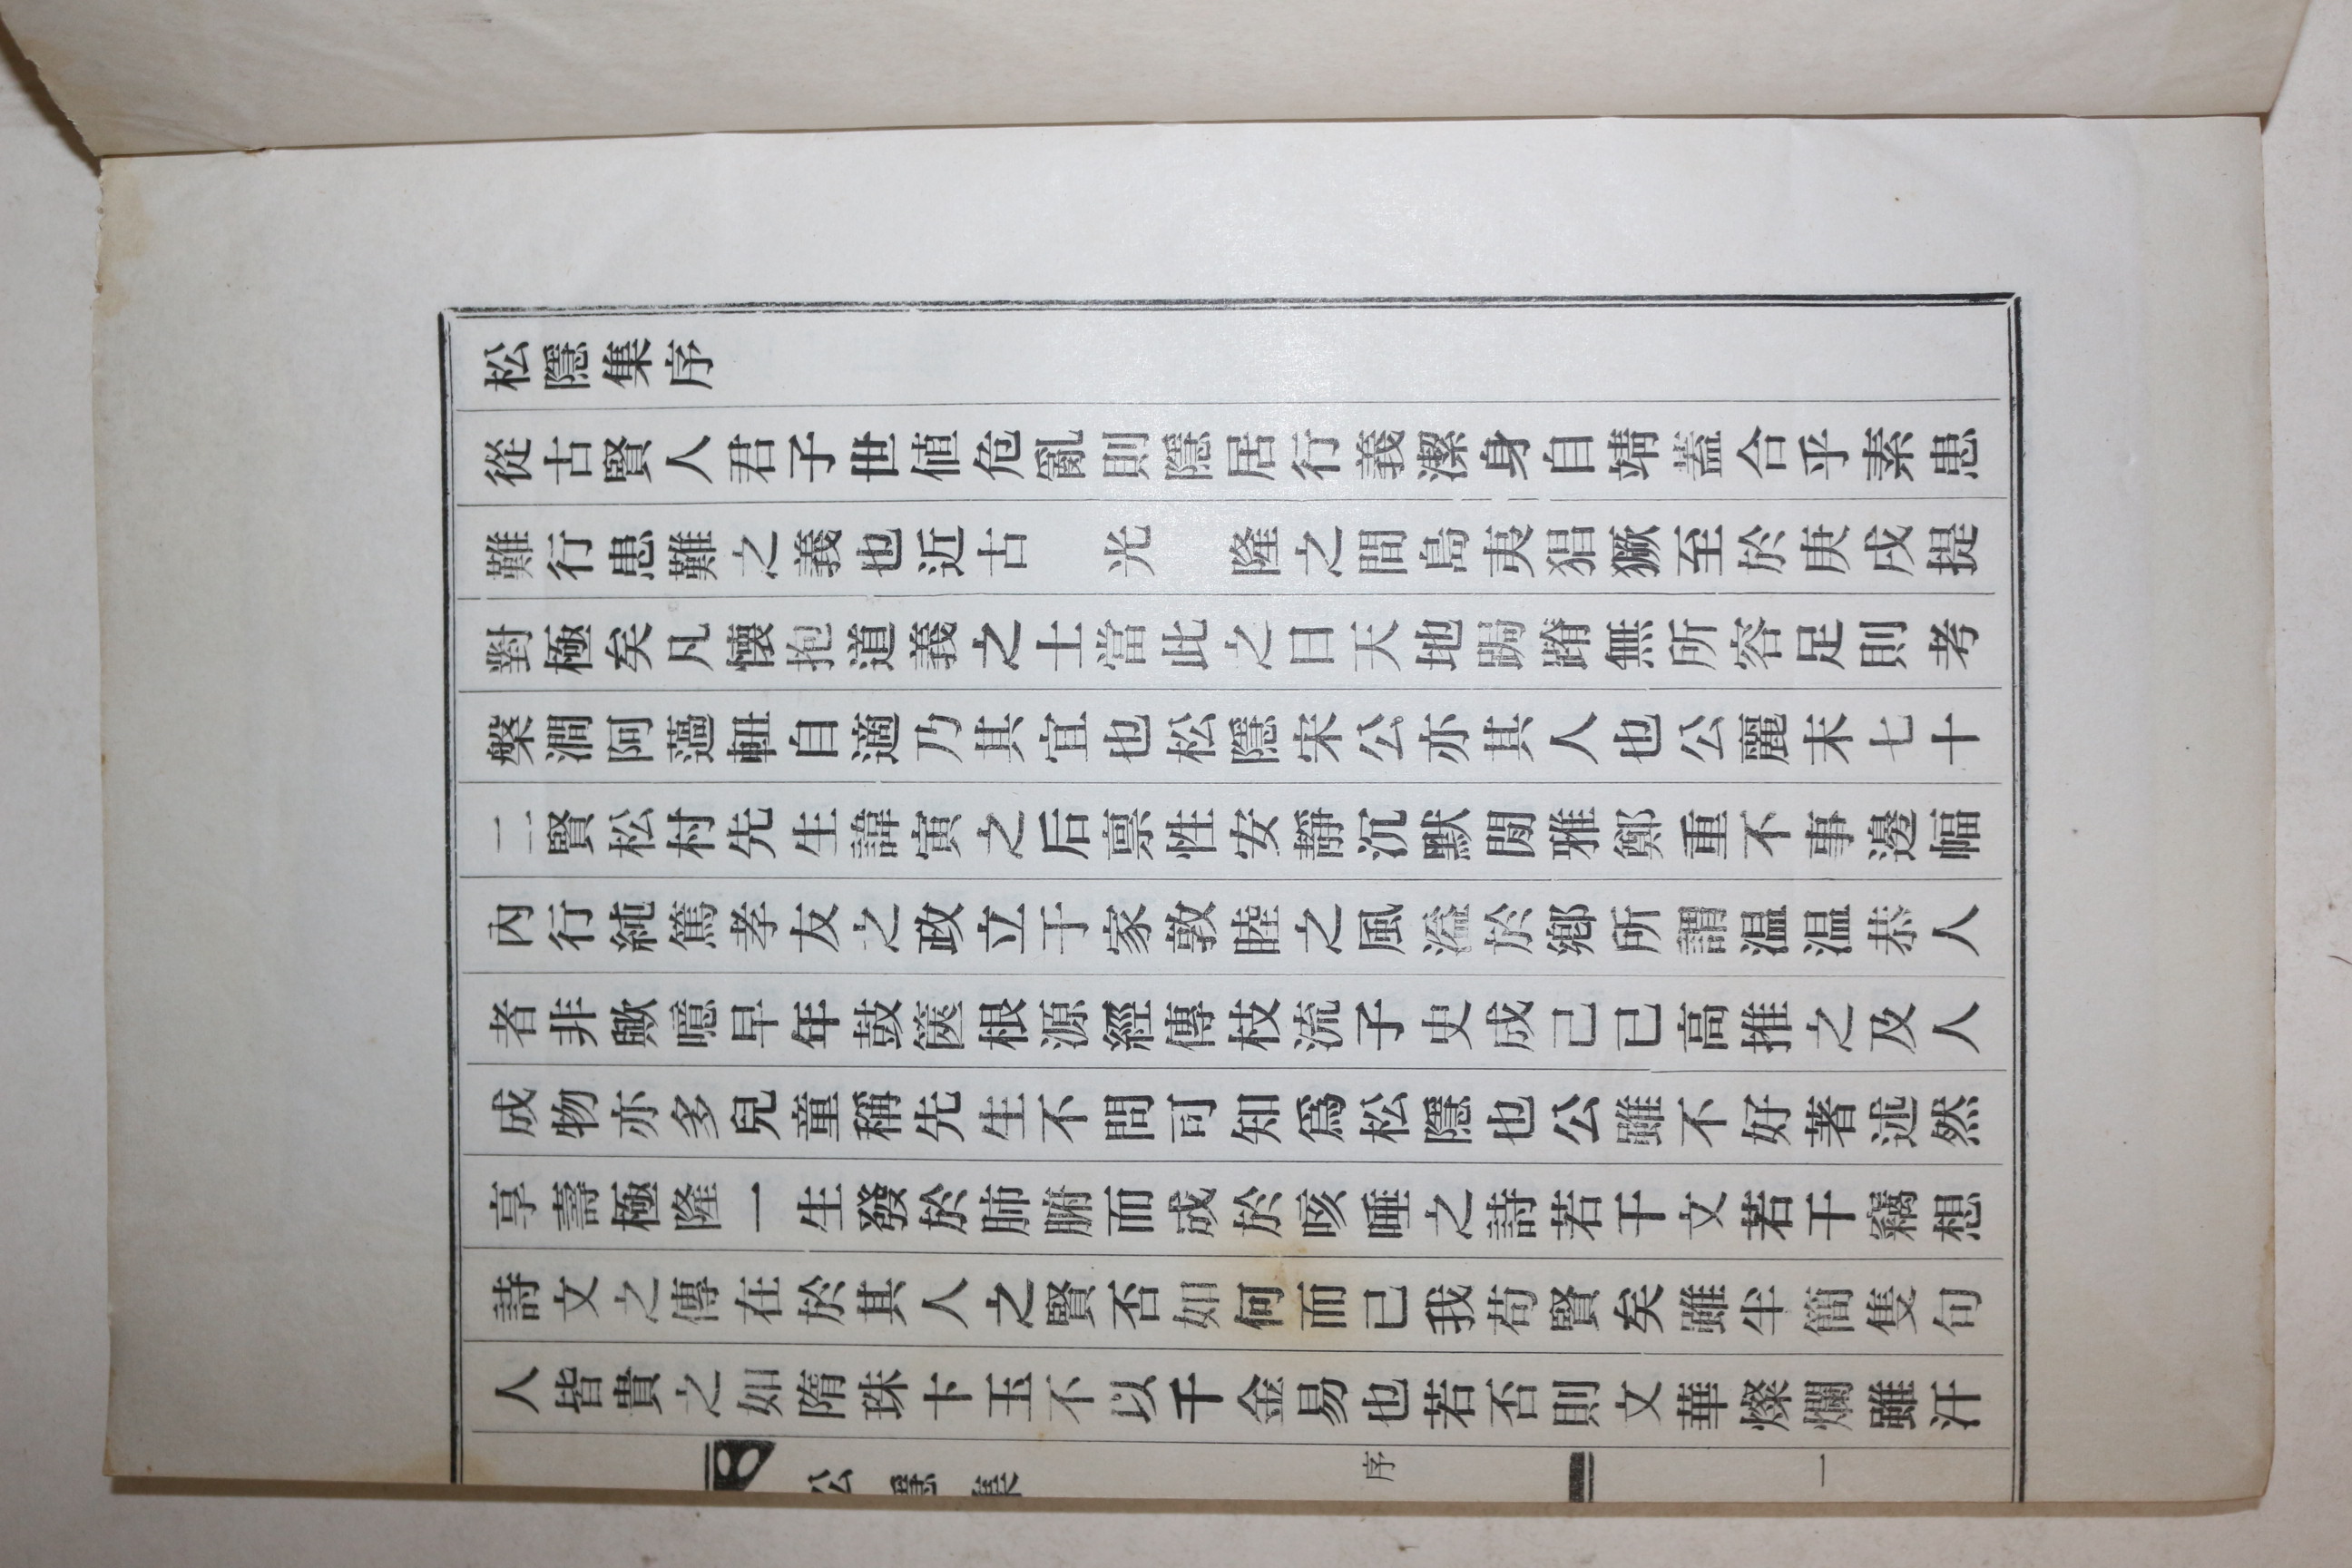 松隱集序
從古賢人君子世値危亂則隱居行義潔身自靖蓋合乎素患
難行患難之義也近古 光 隆之間島夷猖獗至於庚戌提
對極矣凡懷抱道義之士當此之日天地跼蹐無所容足則考
槃澗阿薖軸自適乃其宜也松隱宋公亦其人也公麗末七十
二賢松村先生諱寅之后禀性安靜沉默閒雅鄭重不事邊幅
內行純篤孝友之政立于家敦睦之風溢於鄕所謂温温恭人
者非歟噫早年鼓篋根源經傳枝流子史成己已高推之及人
成物亦多兒童稱先生不問可知爲松隱也公雖不好著述然
享壽極隆一生發於肺腑而成於咳唾之詩若干文若干竊想
詩文之傳在於其人之賢否如何而已我苟賢矣雖半簡隻句
人皆貴之如隋珠卞玉不以千金易也若否則文華燦爛雖汗
集 序 一